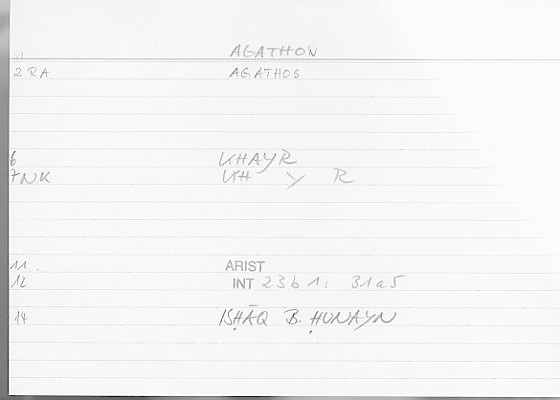 1 AGATHON
2 RA AGATHOS
6 KHAYR
7 NK KH Y R
11. ARIST
12 INT 23b1: 31a5
14 ISḤĀQ B. ḤUNAYN